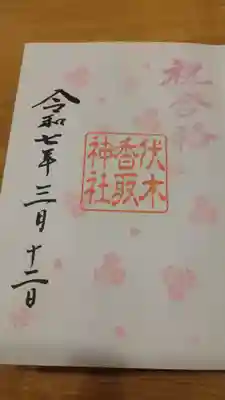 祝合格
伏木
香取
神社
令和七年三月十二日